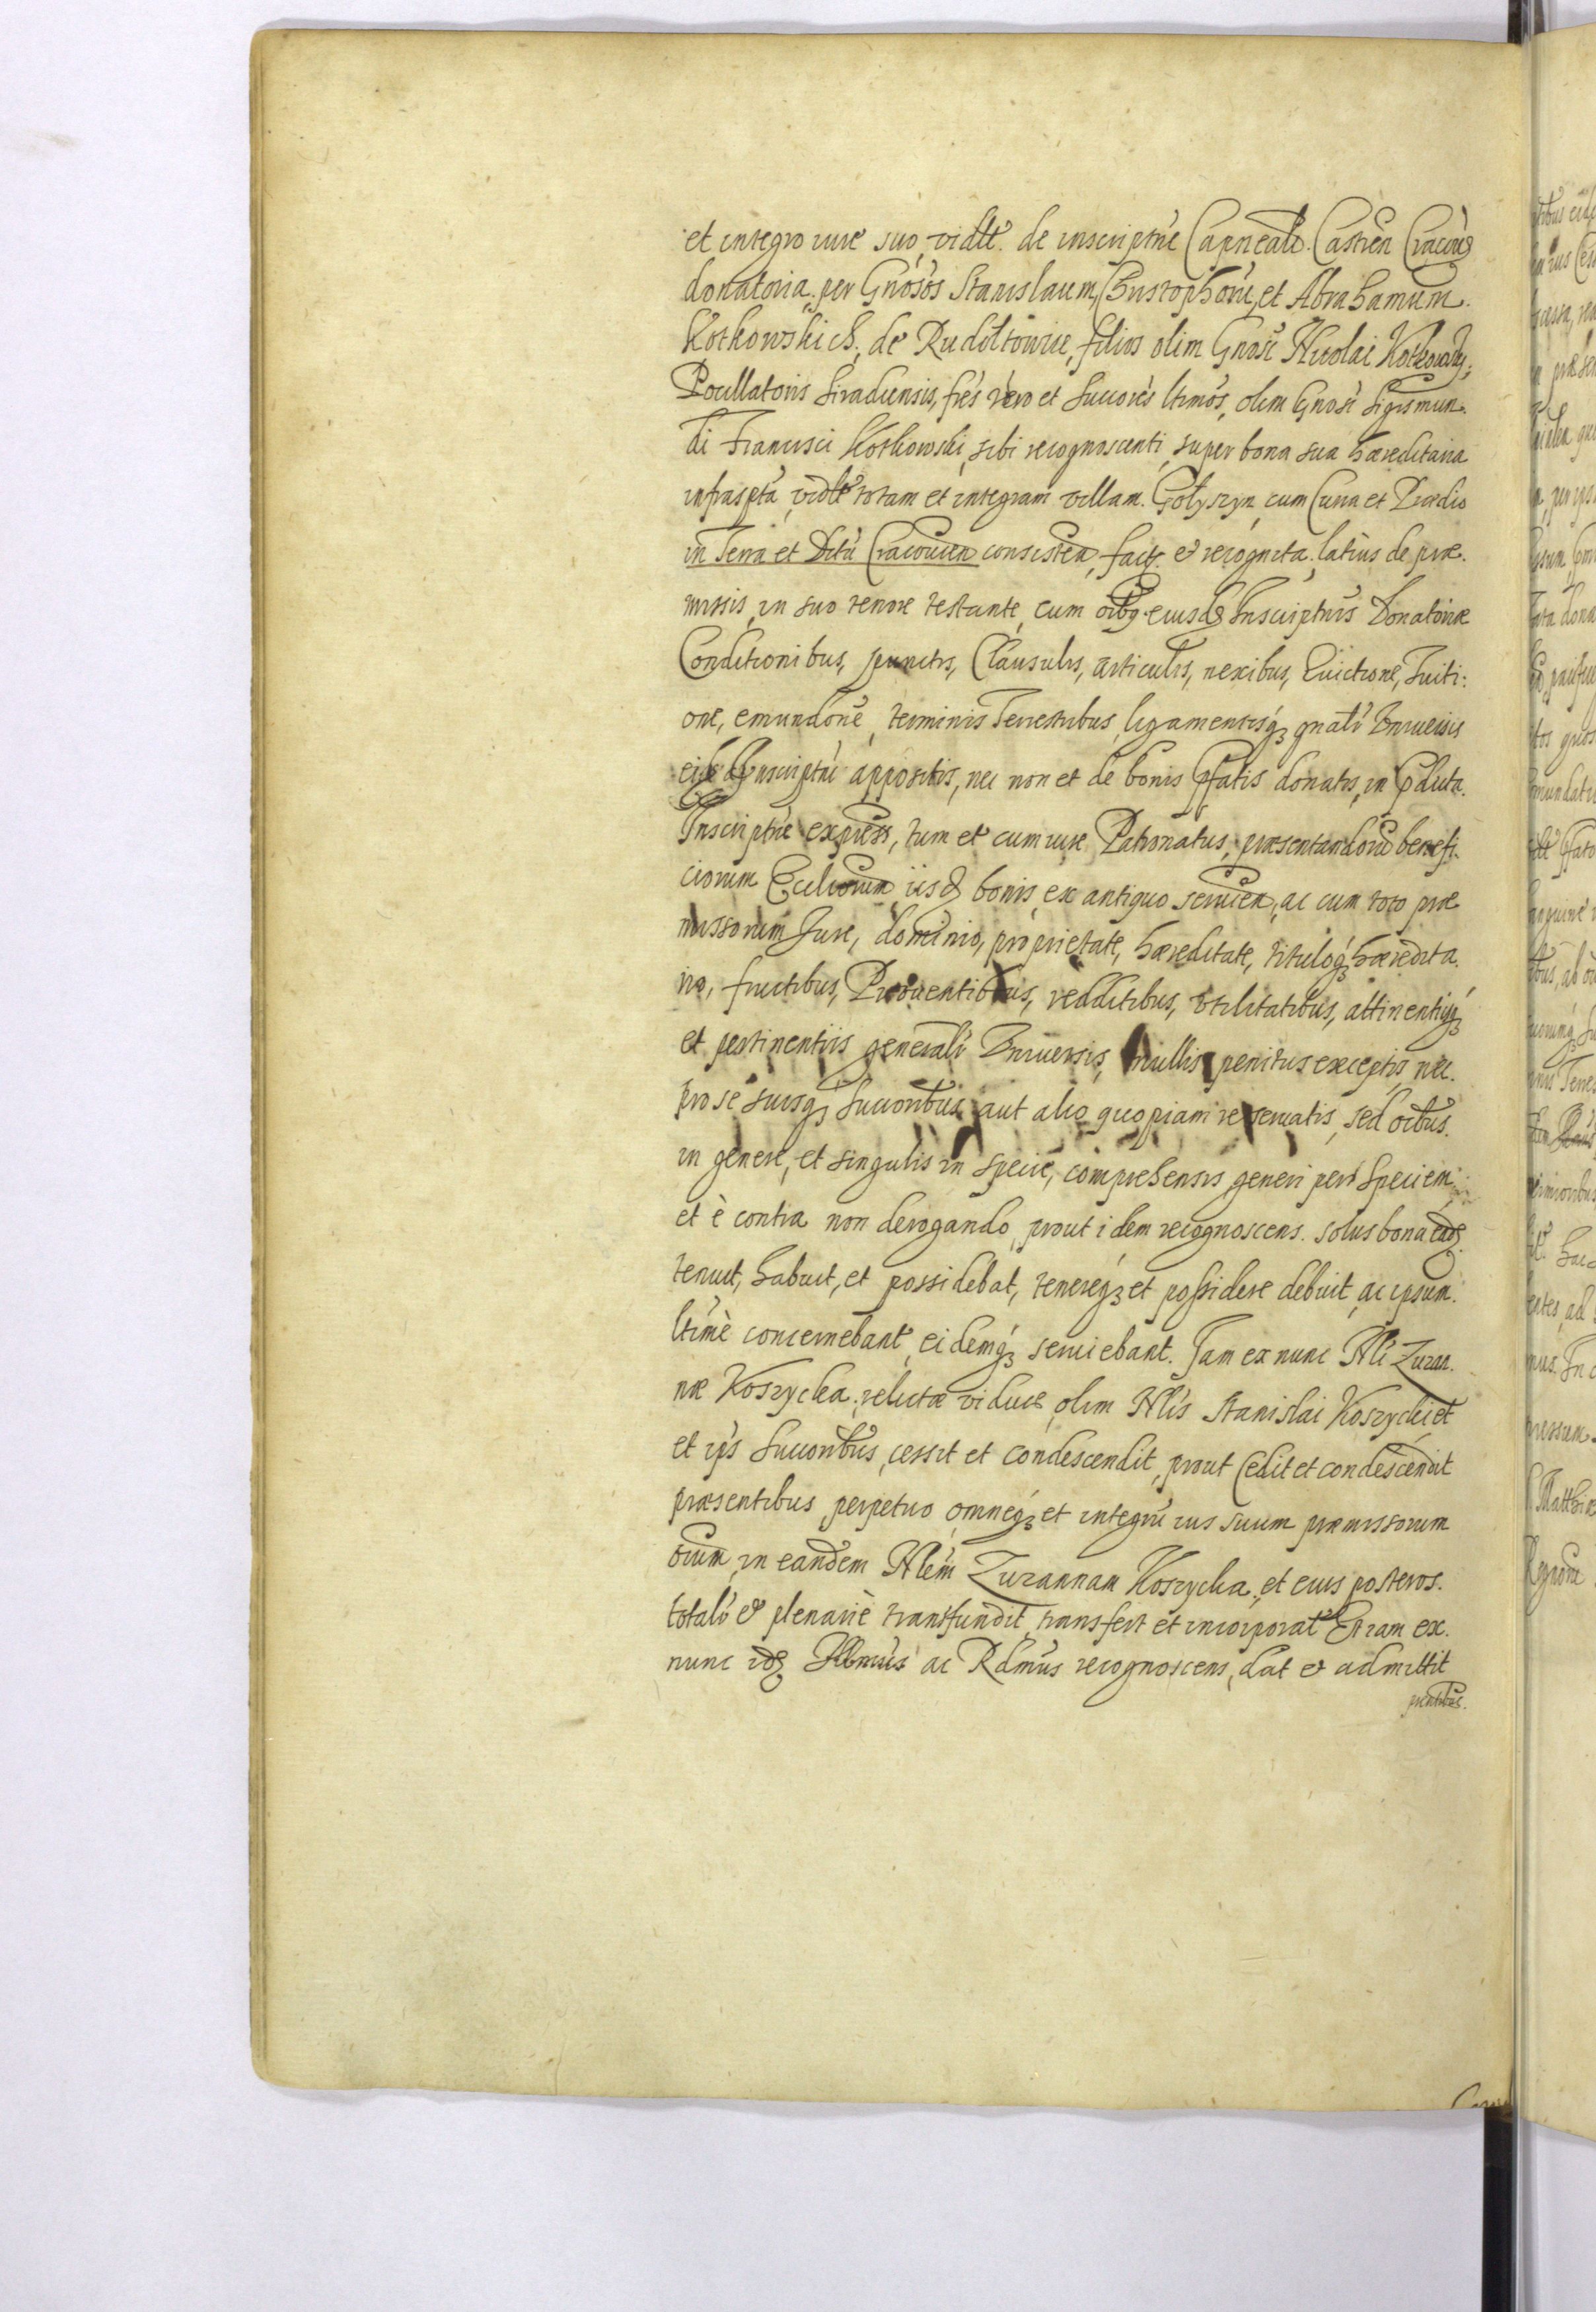 et integro iure suo, vidlt. de inscriptne Capneali. Castren Cracou
donatoria, per Gnosos Stanislaum, Christophorū, et Abrahamum.
Kotkowskich, de Rudoltowice, filios olim Gnosi Nicolai Kotkowsky,
Pocillatoris Siradiensis, fres vero et Succores ltimos, olim Gnosi Sigismun.
di Francisci Kotkowski, sibi recognoscenti, super bona sua hæreditaria
infrascpta, vidlt totam et integram villam. Gołyszyn, cum Curia et Prædio
in Terra et Dttu Cracouien consisten, fact. et recognita, latius de præ.
missis, in suo tenore testante, cum oibꝫ eiusd Inscriptnis Donatoriæ
Conditionibus, punctis, Clausulis, articulis, nexibus, Euictione, Tuiti:
one, emundone, terminis Terrestribus, ligamentisqꝫ gnalr Vniuersis
eid Inscriptni appositis, nec non et de bonis pfatis donatis, in pdicta.
Inscriptne express, tum et cum iure Patronatus, præsentandorū benefi.
ciorum Eccliorum, iisd bonis, ex antiquo seruien, ac cum toto præ
missorum Jure, dominio, proprietate, hæreditate, tituloqꝫ hæredita.
rio, fructibus, Prouentibus, redditibus, vtilitatibus, attinentijsqꝫ
et pertinentiis generalr Vniuersis, nullis penitus exceptis, nec.
pro se suisqꝫ Succoribus, aut alio quopiam reseruatis, sed oibus.
in genere, et singulis in specie, comprehensis, generi per Speciem,
et è contra non derogando, prout idem recognoscens. solus bona ead.
tenuit, habuit, et possidebat, tenereqꝫ et possidere debuit, ac ipsum.
ltimè concernebant, eidemqꝫ seruiebant. Jam ex nunc Nli Zuzan.
næ Koszycka, relictæ viduæ, olim Nlis Stanislai Koszycki, et
et ips Succoribus, cessit et condescendit, prout Cedit et condescendit
præsentibus perpetuo, omneqꝫ et integrū ius suum præmissorum
oium, in eandem Nlem Zuzannam Koszycka, et eius posteros.
totalr et plenariè transfundit, transfert et incorporat. Etiam ex.
nunc id Illmus ac Rdmus recognoscens, dat et admittit
pntibus.